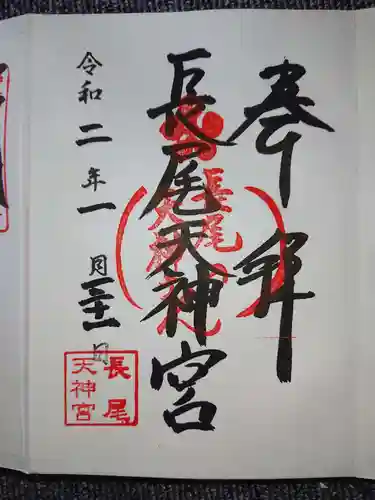 奉拝
長尾天神宮
長尾
天神宮
令和二年一月三十一日
長尾
天神宮